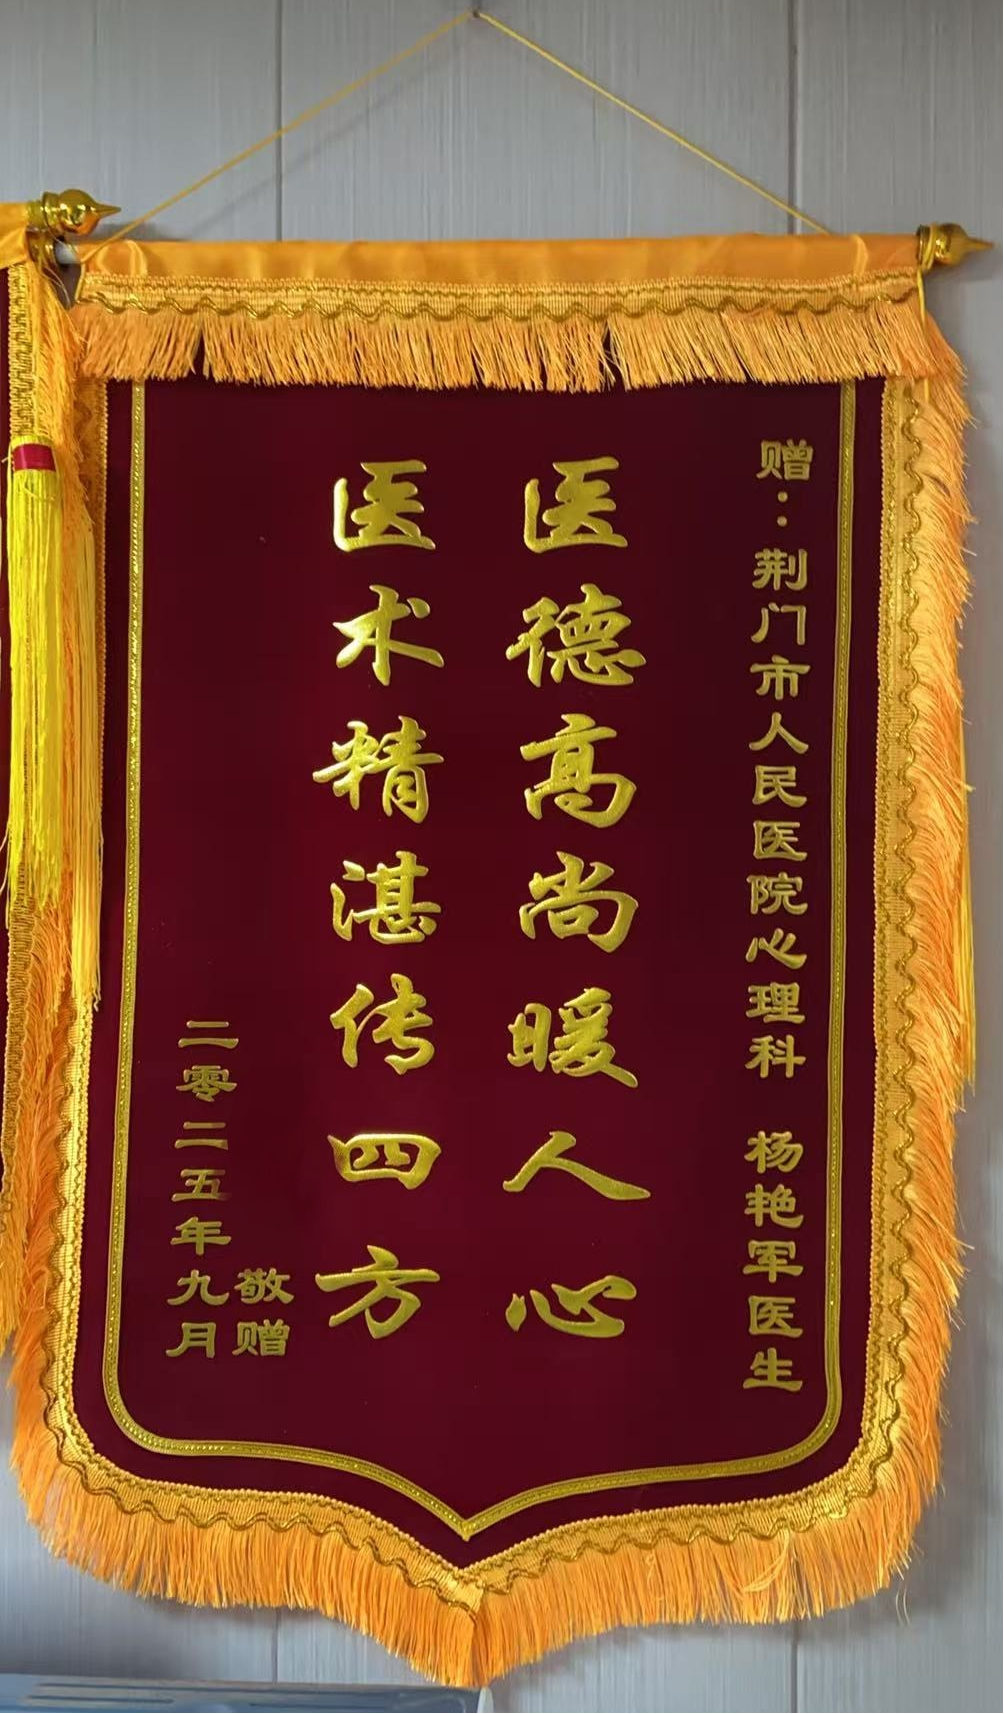 赠：荆门市人民医院心理科 杨艳军医生
医德高尚暖人心
医术精湛传四方
敬赠
二零二五年九月